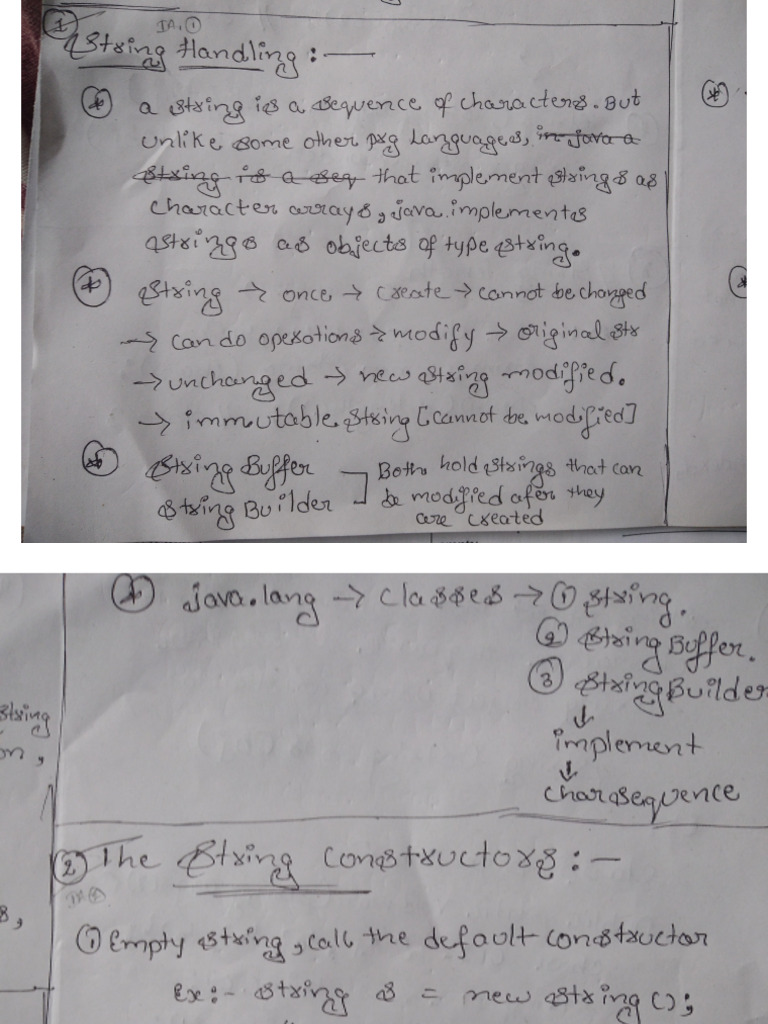 ① IA, ①
String Handling :—
* a string is a sequence of characters. But
unlike some other prg languages, in java a
string is a seq that implement strings as
character arrays, java implements
strings as objects of type string.
* String → once → create → cannot be changed
→ can do operations → modify → original str
→ unchanged → new string modified.
→ immutable string [cannot be modified]
* String Buffer
String Builder
Both hold strings that can
be modified afer they
are created
* java.lang → classes → ① string.
② String Buffer.
③ String Builder
↓
implement
↓
charsequence
string
on,
② The String constructors :—
s,
① Empty string, call the default constructor
Ex:- string s = new string ();